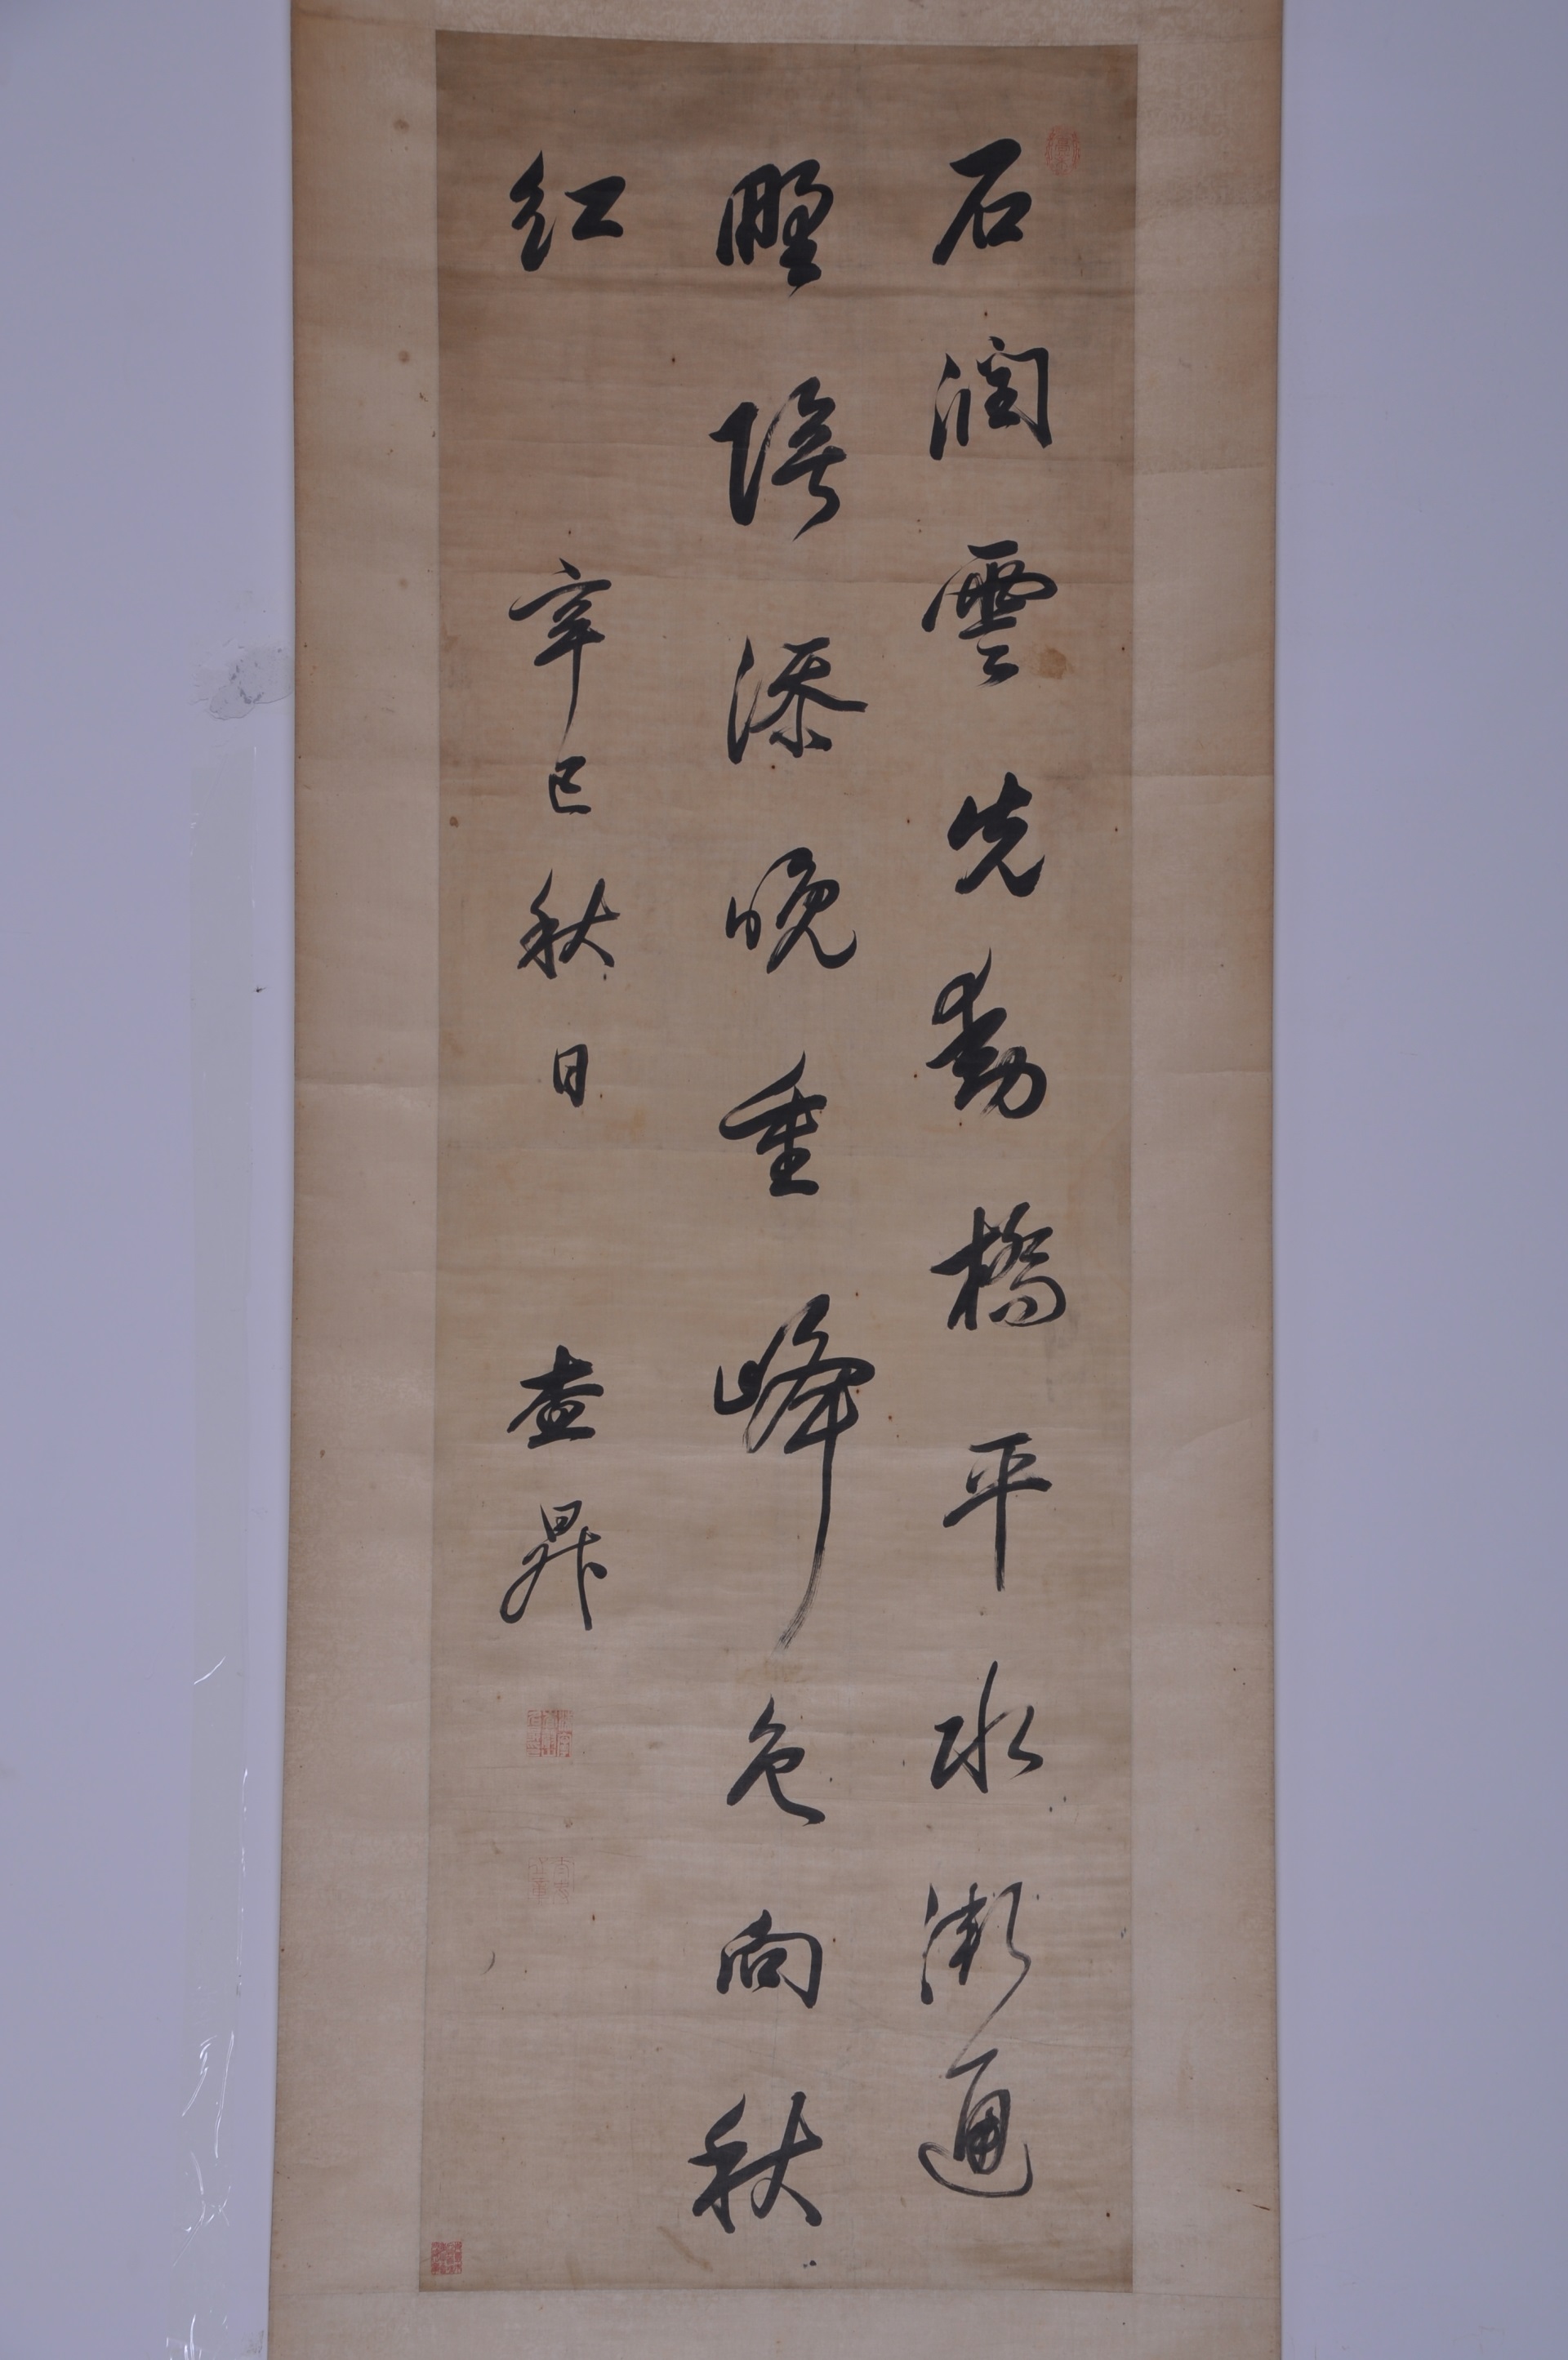 石潤雲先動橋平水漸通
野陰添晚重峰色向秋
紅 辛巳秋日 查昇